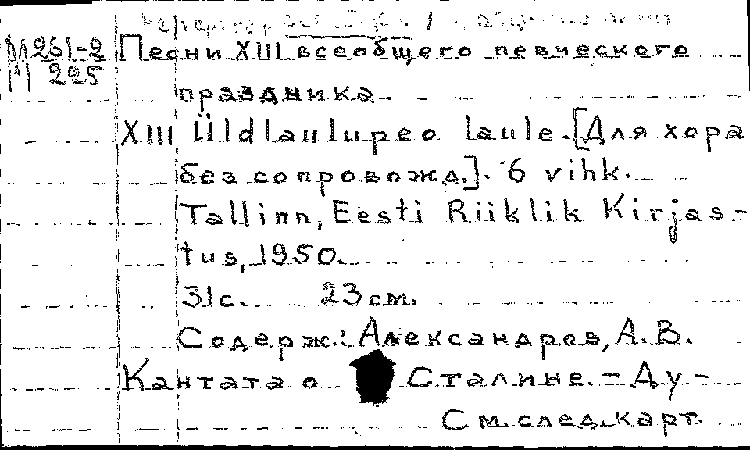 М261-2 Песни XIII всеобщего певческого
М 225 праздника.
XIII Üldlaulupeo laule. [Для хора
без сопровожд.]. 6 vihk.
Tallinn, Eesti Riiklik Kirjas-
tus, 1950.
31с. 23см.
Содерж.: Александров, А.В.
Кантата о Сталине. - Ду-
См. след. карт.